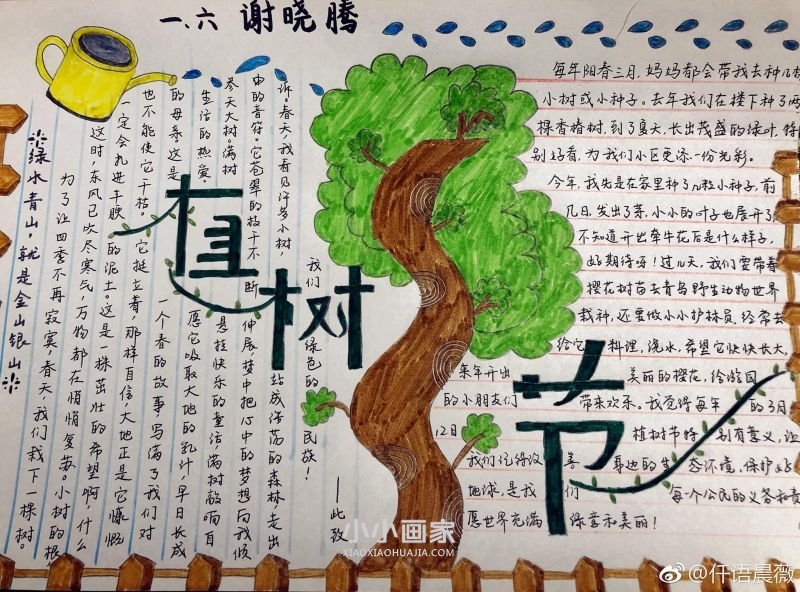 一.六 谢晓腾
植树节
※绿水青山，就是金山银山※
为了让四季不再寂寞，春天，我们栽下一棵树。
这时，东风已吹尽寒气，万物都在悄悄复苏。小树的根
一定会扎进丰腴的泥土。这是一棵茁壮的希望啊，什么
也不能使它干枯。它挺立着，那样自信大地正是它慷慨
的母亲。这是一个春的故事，写满了我们对
生活的热爱。愿它吸取大地的乳汁，早日长成
参天大树。满树悬挂快乐的童话，满树敲响耳
中的音符。它苍翠的枝干不断伸展，梦中把心中的梦想向我倾
诉。春天，我看见许多小树，站成浩荡的森林，走出
我们绿色的民族！
——此致
每年阳春三月，妈妈都会带我去种几棵
小树或小种子。去年我们在楼下种了两
棵香椿树，到了夏天，长出茂盛的绿叶，特
别好看，为我们小区更添一份光彩。
今年，我先是在家里种了几粒小种子，前
几日，发出了芽，小小的叶子也展开了
不知道开出牵牛花后是什么样子，
好期待呀！过几天，我们要带着
樱花树苗去青岛野生动物世界
栽种，还要做小小护林员，经常去
给它料理，浇水，希望它快快长大，
来年开出美丽的樱花，给游园
的小朋友们带来欢乐。我觉得每年的3月
12日植树节特别有意义，让
我们优待改善身边的生态环境，保护好
地球，是我们每个公民的义务和责
愿世界充满绿意和美丽！
小小画家
XIAOXIAOHUAJIA.COM
@仟语晨薇